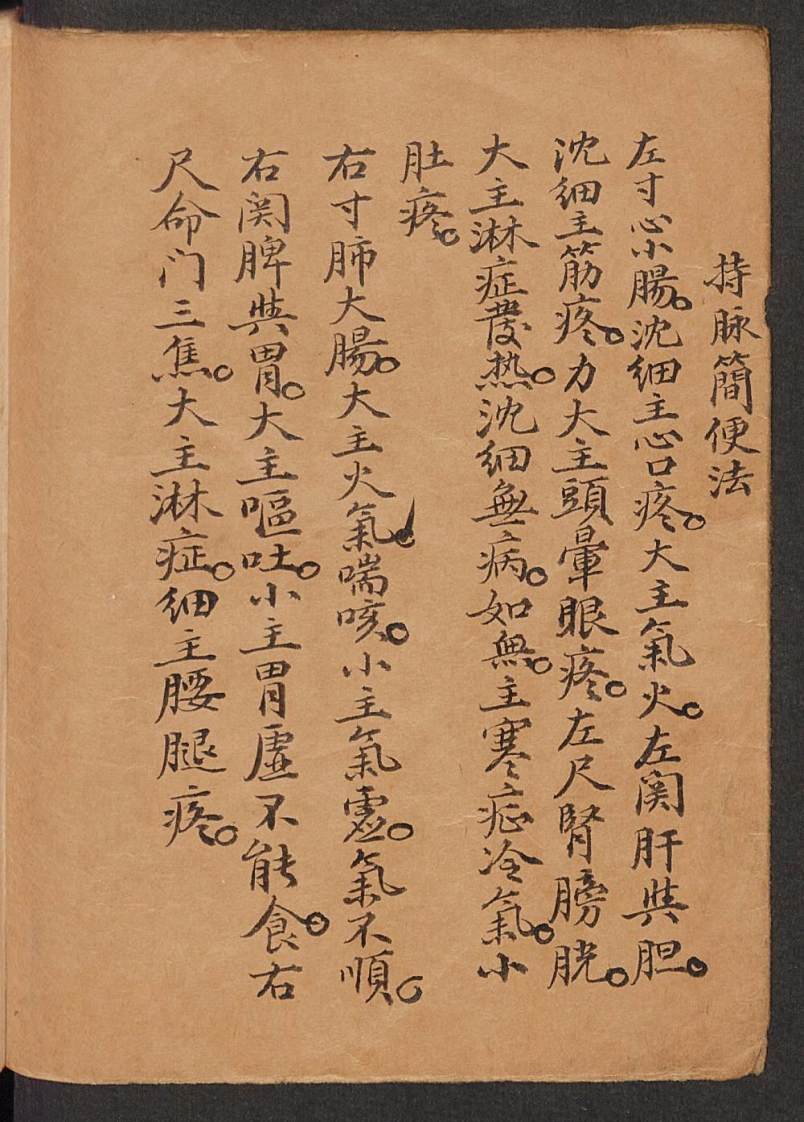 持脉簡便法
左寸心小腸。沈細主心口疼。大主氣火。左関肝與胆。
沈細主筋疼。力大主頭暈眼疼。左尺腎膀胱。
大主淋症發热。沈細無病。如無。主寒症冷氣。小
肚疼。
右寸肺大腸。大主火氣。喘咳。小主氣虛。氣不順。
右関脾與胃。大主嘔吐。小主胃虛不能食。右
尺命门三焦。大主淋症。細主腰腿疼。